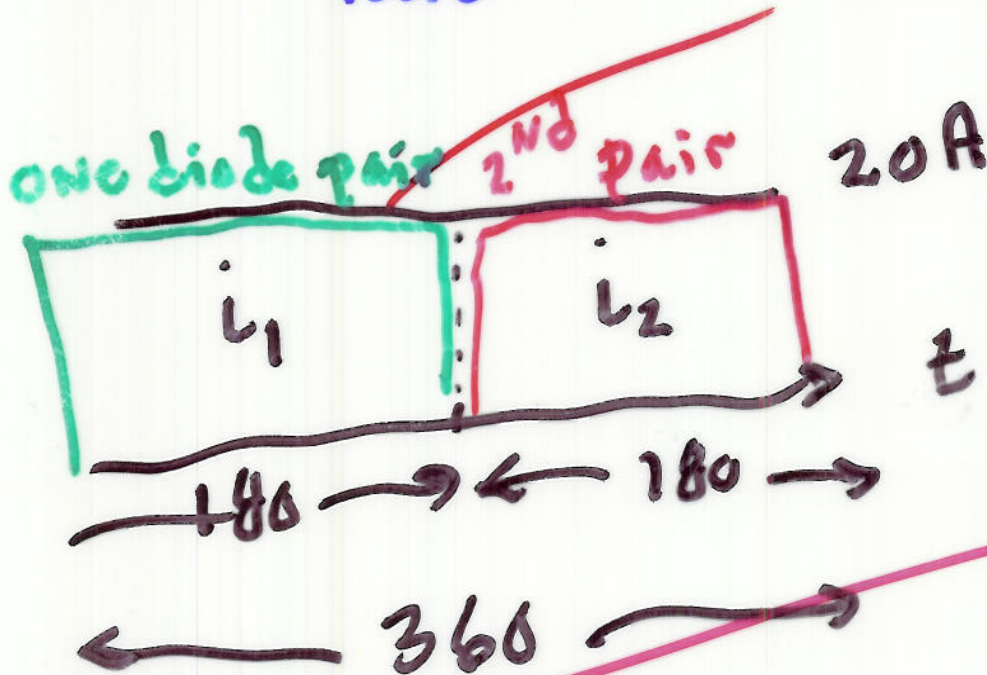 ONE diode pair 2Nd pair 20A
i1 i2
t
180 180
360